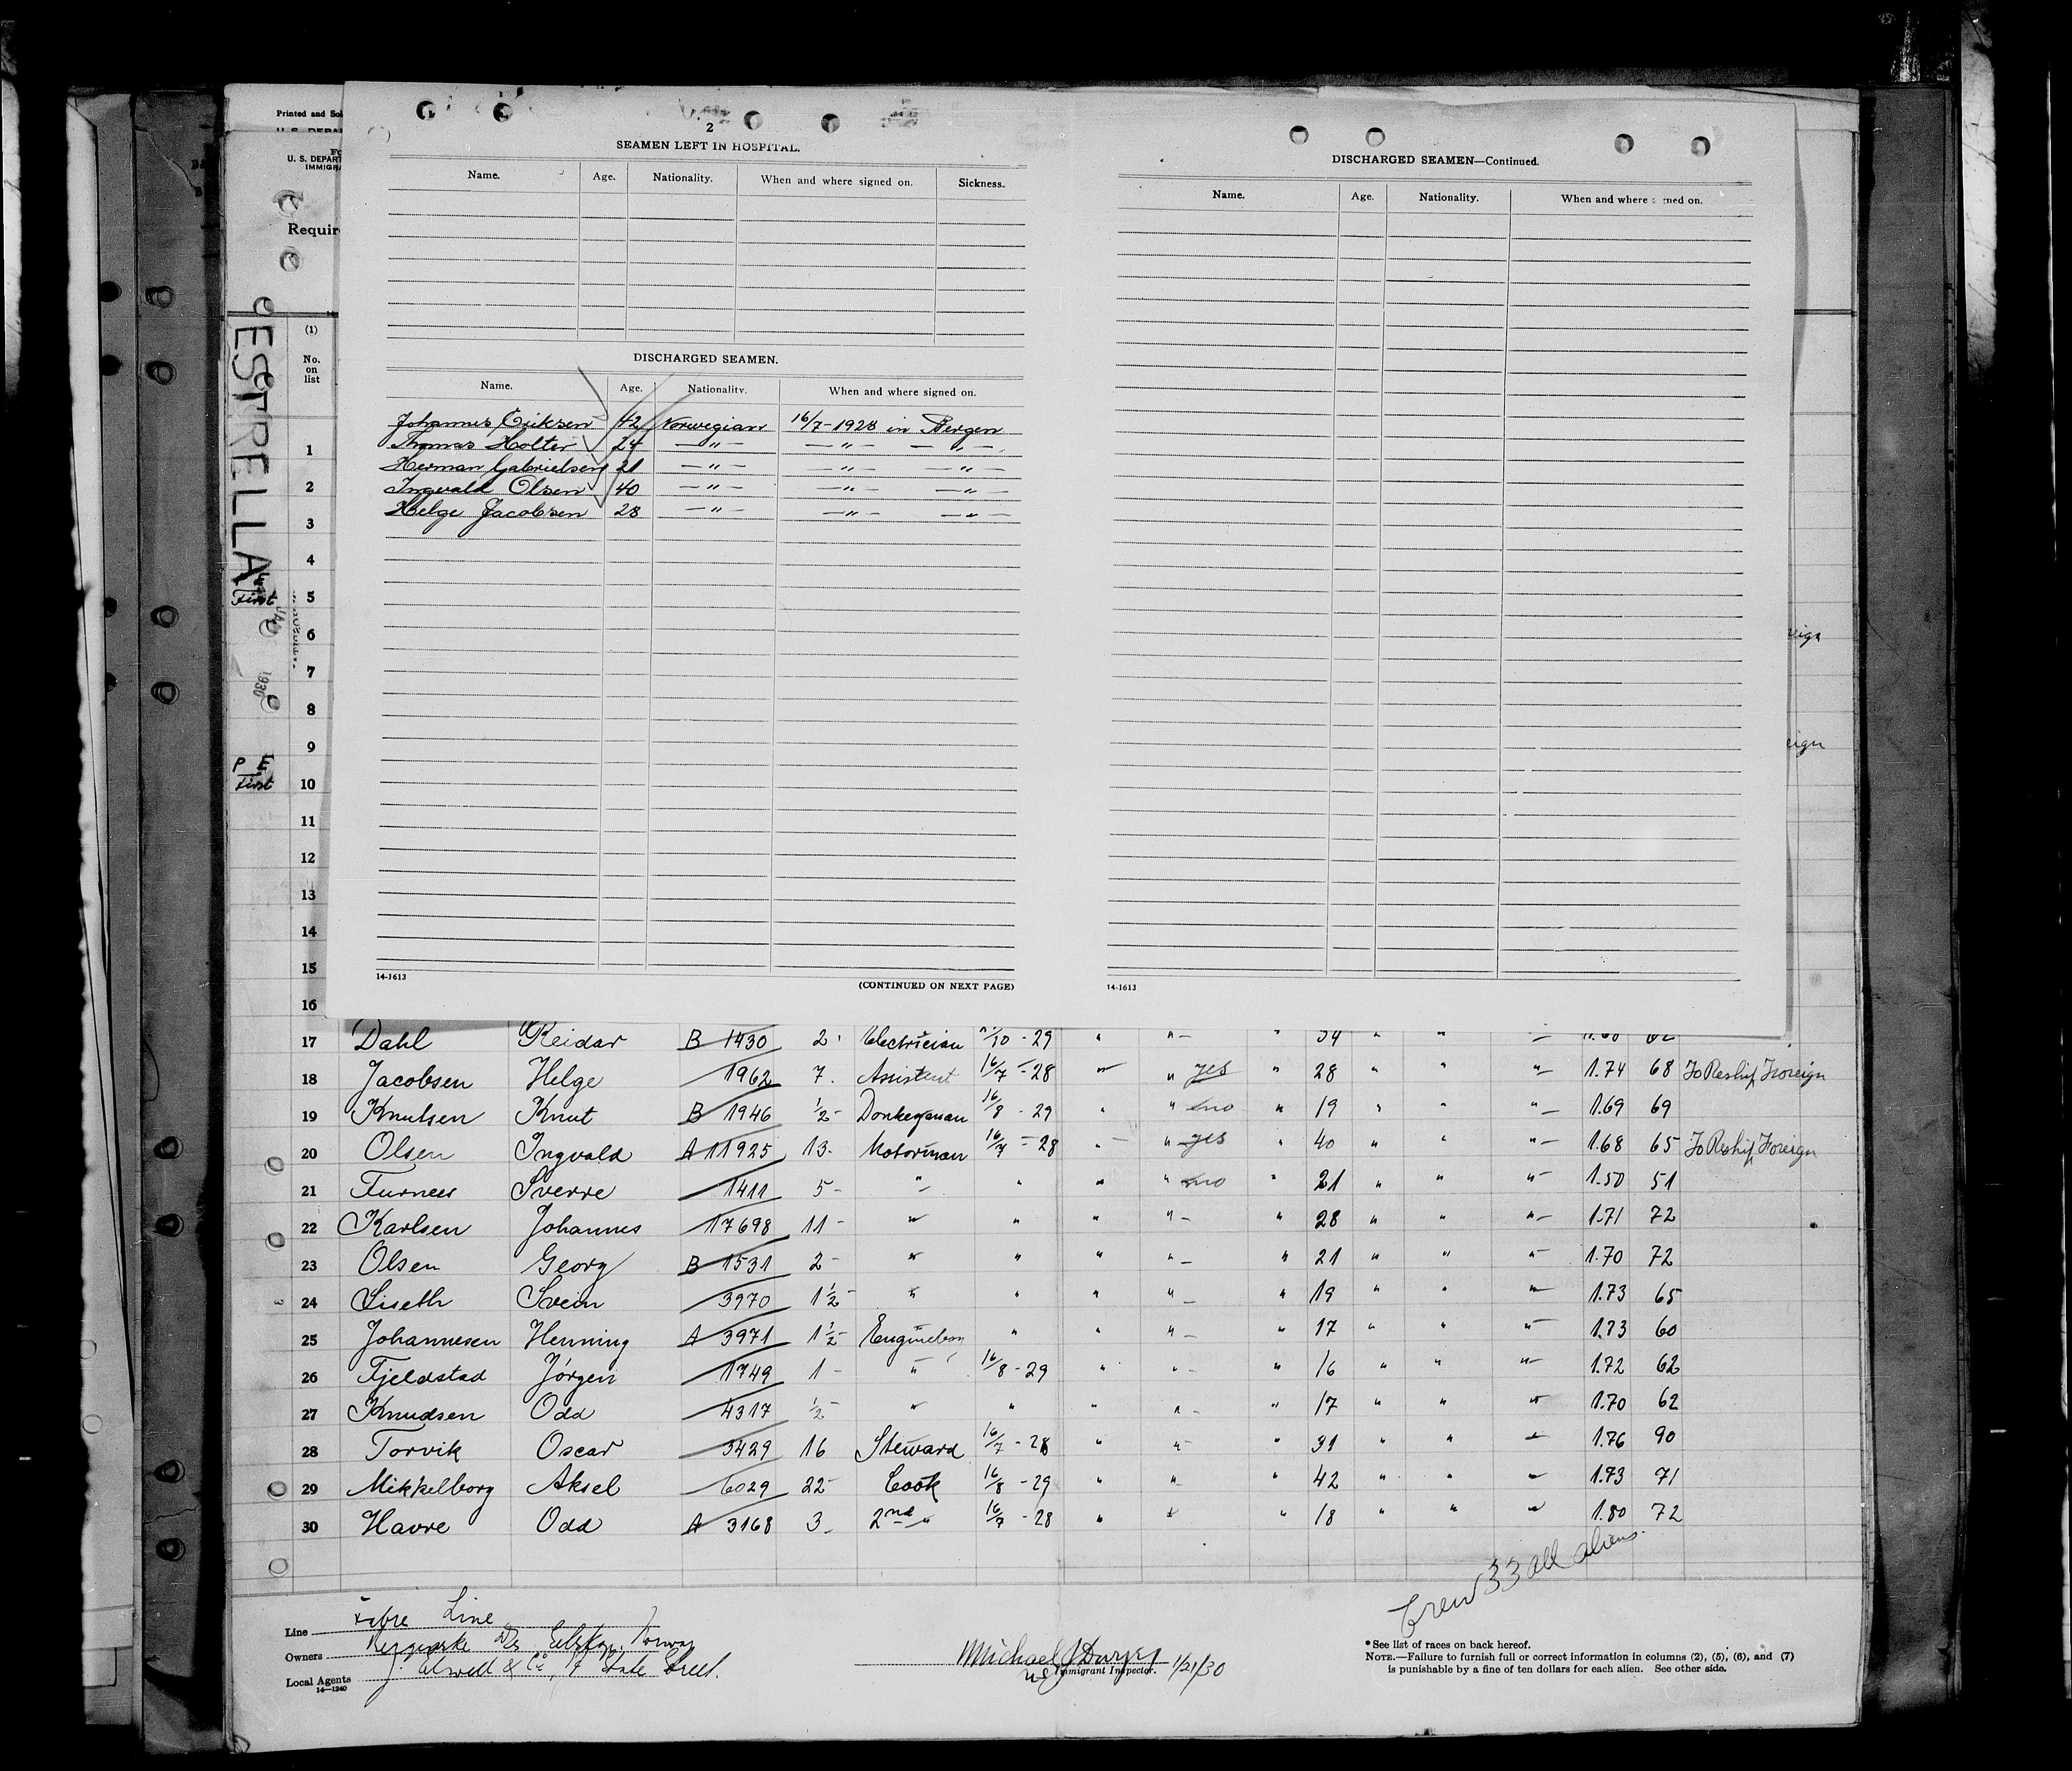 Printed and Sol
U. S. DEPART
IMMIGRA
Requir
ESTRELLA
First
1930
P. E.
First
(1)
No. on list
2
SEAMEN LEFT IN HOSPITAL.
Name. Age. Nationality. When and where signed on. Sickness.
DISCHARGED SEAMEN.
Name. Age. Nationality. When and where signed on.
Johannes Eriksen 42 Norwegian 16/7-1928 in Bergen
Thomas Holter 24 —"— —"— —"—
Herman Gabrielsen 21 —"— —"— —"—
Ingvald Olsen 40 —"— —"— —"—
Helge Jacobsen 28 —"— —"— —"—
14-1613
(CONTINUED ON NEXT PAGE)
DISCHARGED SEAMEN—Continued.
Name. Age. Nationality. When and where signed on.
14-1613
1
2
3
4
5
6 eign
7
8
9 eign
10
11
12
13
14
15
16
17 Dahl Reidar B 1430 2 Electrician /10 - 29 " " - " 34 " " "
18 Jacobsen Helge 1962 7. Assistent 16/7 - 28 " " yes " 28 " " " 1.74 68 To Reship Foreign
19 Knutsen Knut B 1946 ½ - Donkeyman 16/8 - 29 " " no " 19 " " " 1.69 69
20 Olsen Ingvald A 11925 13. Motorman 16/7 - 28 " " yes " 40 " " " 1.68 65 To Reship Foreign
21 Furnees Sverre 1411 5 - " " " " no " 21 " " " 1.50 51
22 Karlsen Johannes 17698 11 - " " " " - " 28 " " " 1.71 72
23 Olsen Georg B 1531 2 - " " " " - " 21 " " " 1.70 72
24 Liseth Svein 3970 1½ - " " " " - " 19 " " " 1.73 65
25 Johannesen Henning A 3971 1½ - Engineboy " " " - " 17 " " " 1.73 60
26 Fjeldstad Jörgen 1749 1 - " 16/8 - 29 " " - " 16 " " " 1.72 62
27 Knudsen Odd 4317 ½ - " " " " - " 17 " " " 1.70 62
28 Torvik Oscar 3429 16 Steward 16/7 - 28 " " " 31 " " " 1.76 90
29 Mikkelborg Aksel 6029 22 - Cook 16/8 - 29 " " " 42 " " " 1.73 71
30 Havre Odd A 3168 3 - 2nd " 16/7 - 28 " " " 18 " " " 1.80 72
Crew 33 all aliens.
Line Fabre Line
Owners Norway
Local Agents J. Elwell & Co, State Street.
14—1240
Michael J Dwyer
US Immigrant Inspector. 1/21/30
* See list of races on back hereof.
NOTE.—Failure to furnish full or correct information in columns (2), (5), (6), and (7)
is punishable by a fine of ten dollars for each alien. See other side.